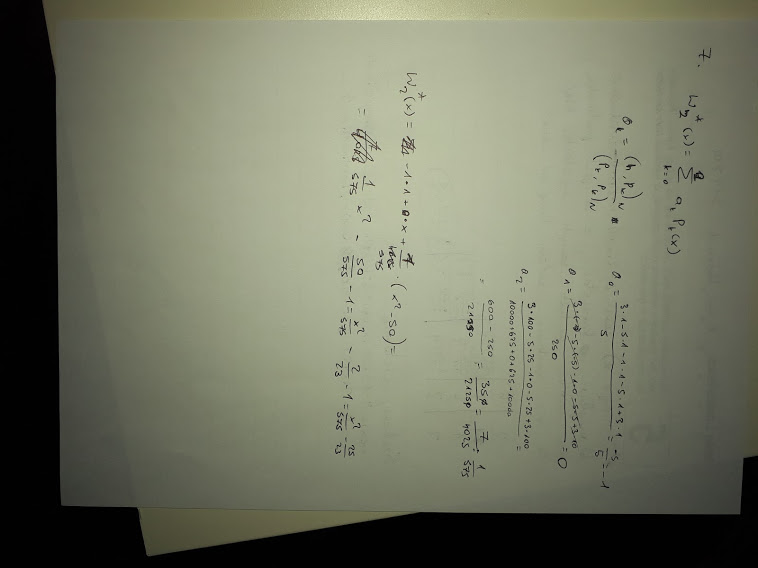 7.
W₂*(x) = Σ_{k=0}^{2} a_k P_k(x)
a_k = (h, P_k)_N / (P_k, P_k)_N
a₀ = (3·1 - 5·1 - 1·1 - 5·1 + 3·1) / 5 = -5/5 = -1
a₁ = (3·(-10) - 5·(-5) - 1·0 - 5·5 + 3·10) / 250 = 0
a₂ = (3·100 - 5·25 - 1·0 - 5·25 + 3·100) / (10000 + 625 + 0 + 625 + 10000) =
= (600 - 250) / 21250 = 350/21250 = 7/4025 = 1/575
W₂*(x) = -1·1 + 0·x + 1/575 · (x² - 50) =
= 1/575 x² - 50/575 - 1 = x²/575 - 2/23 - 1 = x²/575 - 25/23